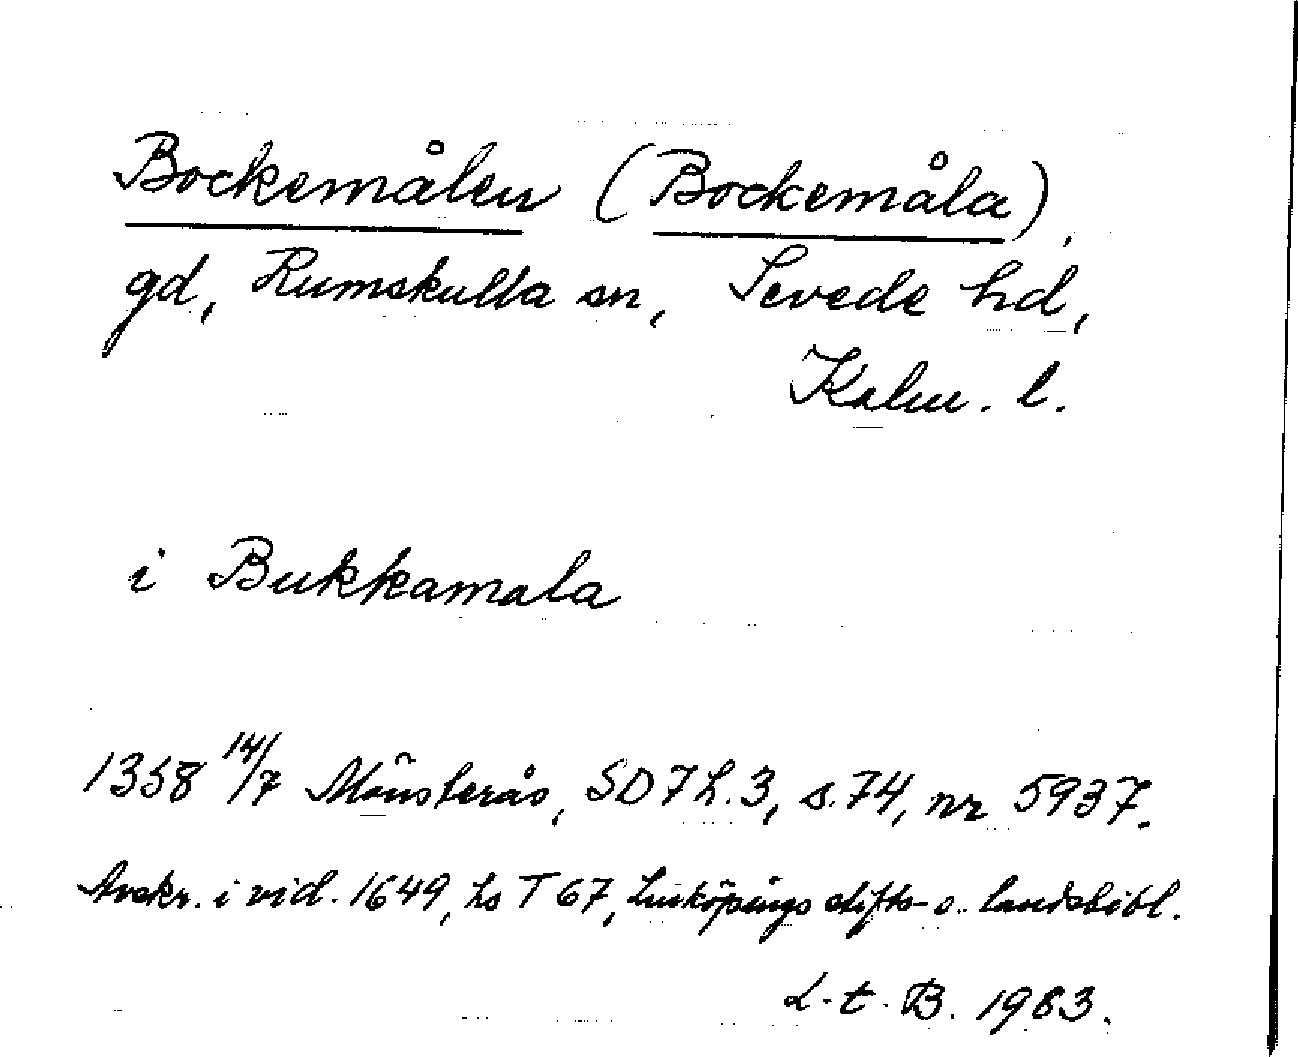 Bockemålen (Bockemåla),
gd, Rumskulla sn, Sevede hd,
Kalm. l.
i Bukkamala
1358 14/7 Mönsterås, SD 7 h. 3, s. 74, nr 5937.
Avskr. i vid. 1649, hs T 67, Linköpings stifts- o. landsbibl.
L. t. B. 1983.